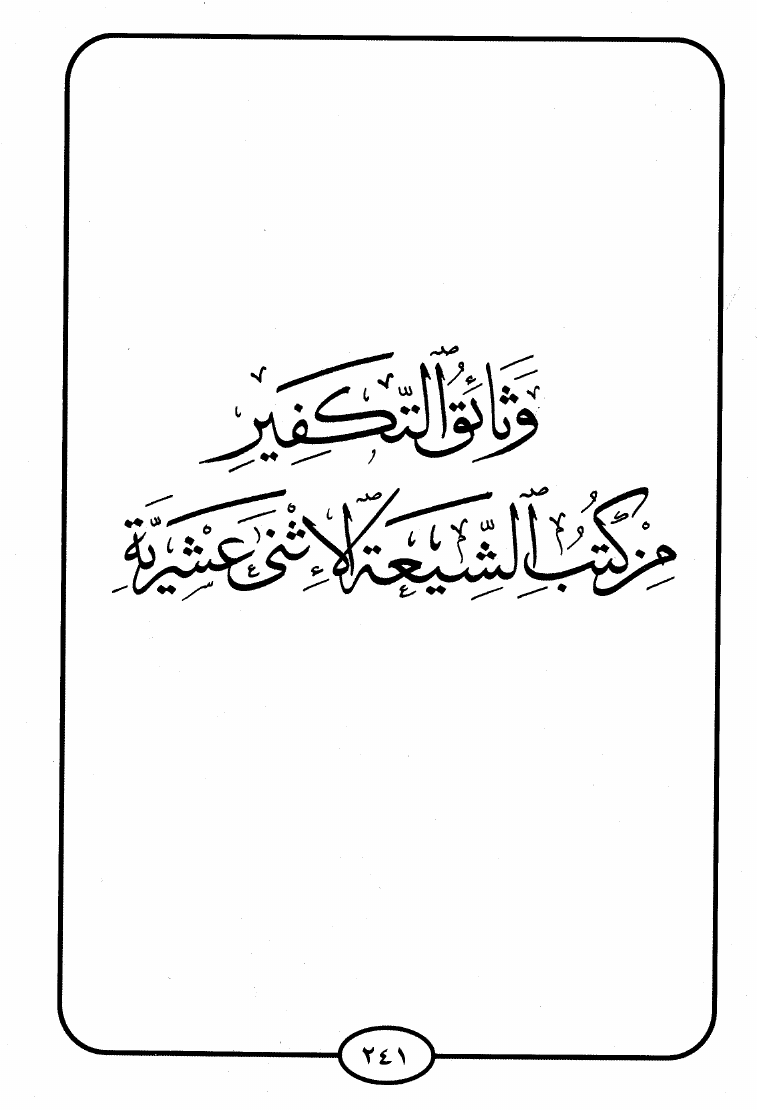 وَثَائِقُ ٱلتَّكْفِيرِ
مِنْ كُتُبِ ٱلشِّيعَةِ ٱلْإِثْنَىْ عَشْرِيَّةِ
٢٤١